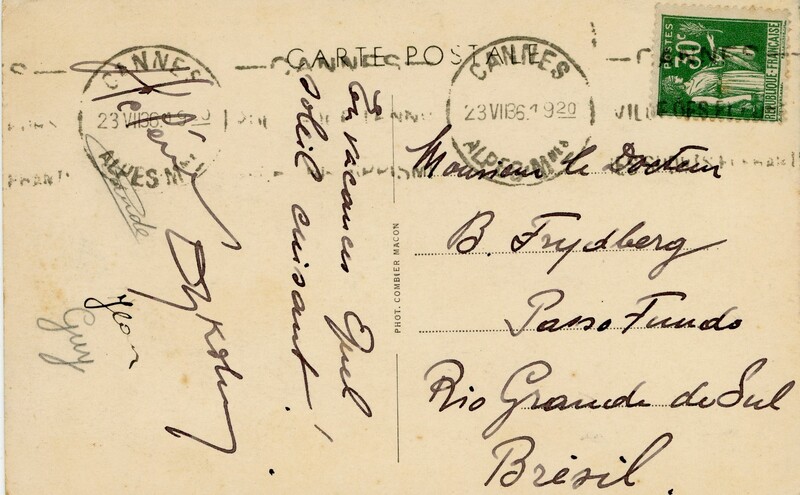 CARTE POSTALE
POSTES
30c
REPUBLIQUE FRANÇAISE
CANNES
23 VII 36. 1920
ALPES-Mmes
CANNES
23 VII 36. 1920
ALPES-M
En vacances Quel
soleil cuisant!
Guy
PHOT. COMBIER MACON
Monsieur le Docteur
B. Frydberg
Passo Fundo
Rio Grande do Sul
Brésil.